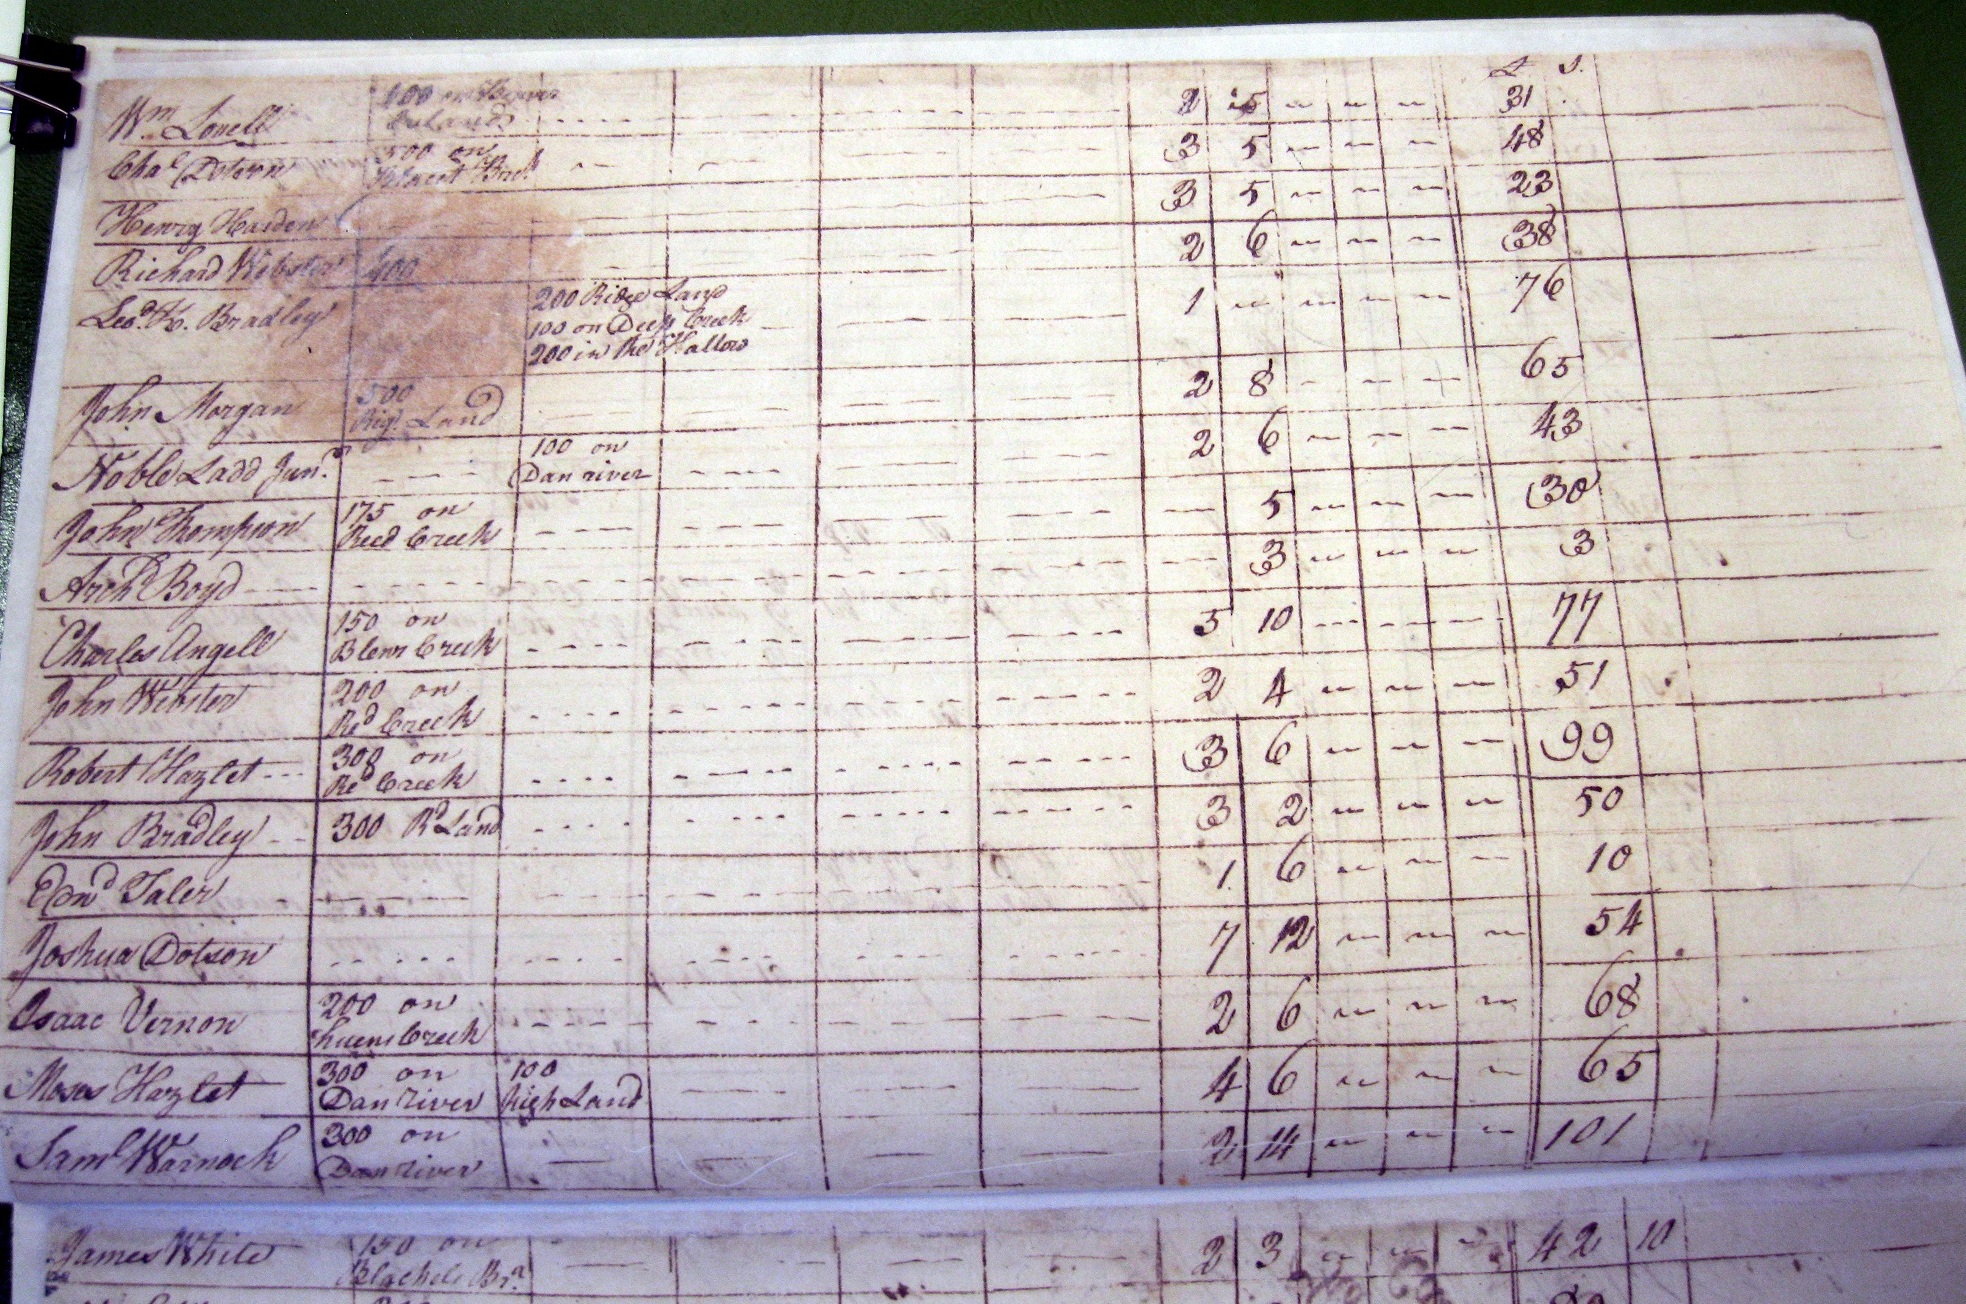 £ S.
Wm. Lovell 100 on Beaver Island 2 5 31
Chas Dotson 500 on 3 5 48
Henry Harden 3 5 23
Richard Webster 400 2 6 38
Leod. K. Bradley 200 Ridge Land 1 76
100 on Deep Creek
200 in the Hallow
John Morgan 500 2 8 65
Rigd. Land
Noble Ladd Junr. 100 on 2 6 43
Dan river
John Thompson 175 on 5 30
Reed Creek
Archd Boyd 3 3
Charles Angell 150 on 5 10 77
Blews Creek
John Webster 200 on 2 4 51
Red Creek
Robert Hazlet 300 on 3 6 99
Red Creek
John Bradley 300 Rd Land 3 2 50
Edmd Taler 1 6 10
Joshua Dotson 7 12 54
Isaac Vernon 200 on 2 6 68
Creek
Moses Hazlet 300 on 100 4 6 65
Dan river high Land
Saml Warnock 300 on 2 14 101
Dan river
James White 150 on 2 3 42 10